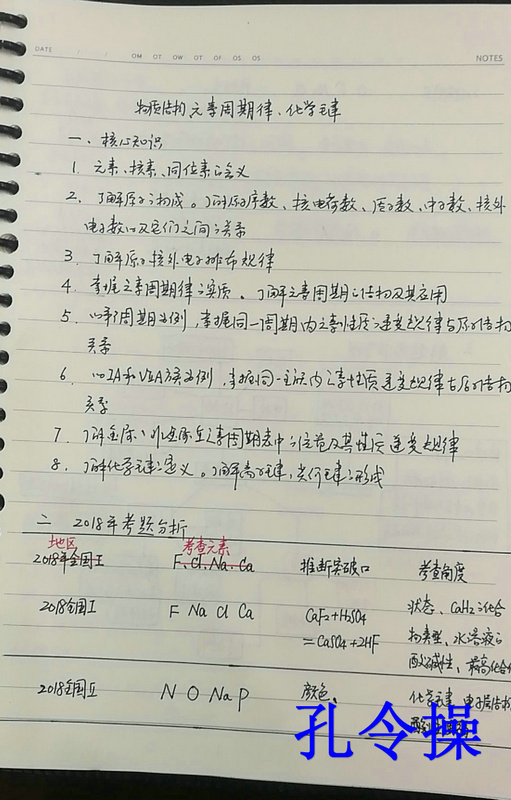 DATE
OM OT OW OT OF OS OS
NOTES
物质结构 元素周期律、化学键
一、核心知识
1. 元素、核素、同位素的含义
2. 了解原子构成。了解原子序数、核电荷数、质子数、中子数、核外
电子数以及它们之间的关系
3. 了解原子核外电子排布规律
4. 掌握元素周期律的实质。了解元素周期的结构及其应用
5. 以第3周期为例,掌握同一周期内元素性质的递变规律与原子结构
关系
6. 以IA和VIIA族为例,掌握同一主族内元素性质递变规律与原子结构
关系
7. 了解金属、非金属在元素周期表中的位置及其性质递变规律
8. 了解化学键的定义。了解离子键,共价键的形成
二 2018年考题分析
地区 考查元素
2018年全国I F、Cl、Na、Ca 推断突破口 考查角度
2018全国I F Na Cl Ca CaF2+H2SO4 状态、CaH2的化合
=CaSO4+2HF 物类型,水溶液的
酸碱性,最高化合价
2018全国II N O Na P 颜色、 化学键,电子层结构
孔令操